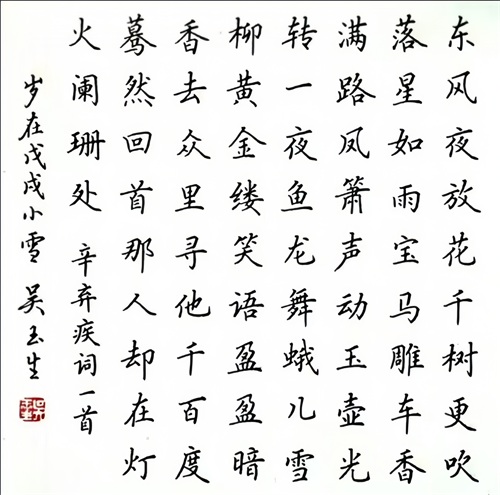 东风夜放花千树更吹
落星如雨宝马雕车香
满路凤箫声动玉壶光
转一夜鱼龙舞蛾儿雪
柳黄金缕笑语盈盈暗
香去众里寻他千百度
蓦然回首那人却在灯
火阑珊处 辛弃疾词一首
岁在戊戌小雪 吴玉生